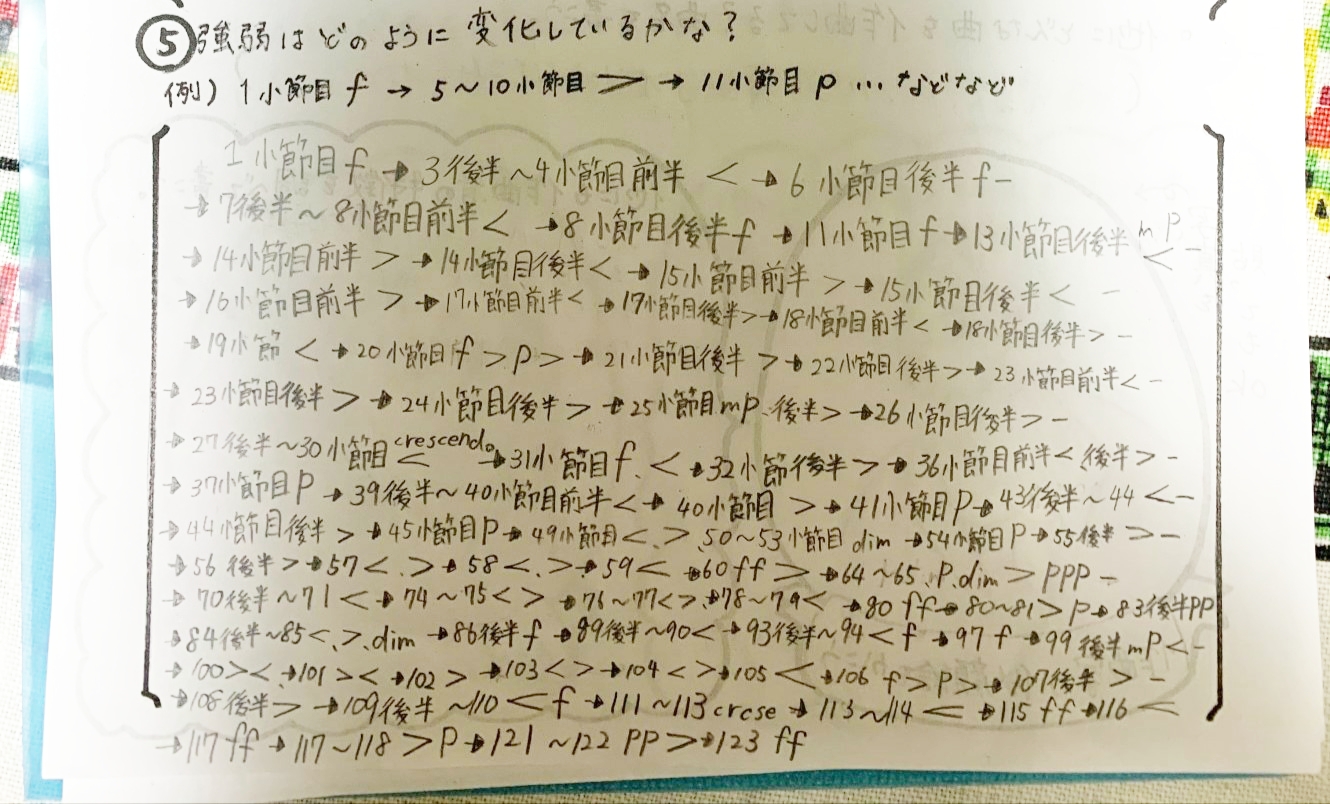 ⑤強弱はどのように変化しているかな?
例) 1小節目 f → 5〜10小節目 > → 11小節目 p … などなど
1小節目 f → 3後半〜4小節目前半 < → 6小節目後半 f –
→ 7後半〜8小節目前半 < → 8小節目後半 f → 11小節目 f → 13小節目後半 mp < –
→ 14小節目前半 > → 14小節目後半 < → 15小節目前半 > → 15小節目後半 < –
→ 16小節目前半 > → 17小節目前半 < → 17小節目後半 > → 18小節目前半 < → 18小節目後半 > –
→ 19小節 < → 20小節目 f > p > → 21小節目後半 > → 22小節目後半 > → 23小節目前半 < –
→ 23小節目後半 > → 24小節目後半 > → 25小節目 mp.後半 > → 26小節目後半 > –
→ 27後半〜30小節目 crescendo < → 31小節目 f. < → 32小節後半 > → 36小節目前半 < .後半 > –
→ 37小節目 p → 39後半〜40小節目前半 < → 40小節目 > → 41小節目 p → 43後半〜44 < –
→ 44小節目後半 > → 45小節目 p → 49小節目 < . > .50〜53小節目 dim → 54小節目 p → 55後半 > –
→ 56後半 > → 57 < . > → 58 < . > → 59 < → 60 ff > → 64〜65.p.dim > ppp –
→ 70後半〜71 < → 74〜75 < > → 76〜77 < > → 78〜79 < → 80 ff → 80〜81 > p → 83後半 pp
→ 84後半〜85 < . > .dim → 86後半 f → 89後半〜90 < → 93後半〜94 < f → 97 f → 99後半 mp < –
→ 100 > < → 101 > < → 102 > → 103 < > → 104 < > → 105 < → 106 f > p > → 107後半 > –
→ 108後半 > → 109後半〜110 < f → 111〜113 crcse → 113〜114 < → 115 ff → 116 <
→ 117 ff → 117〜118 > p → 121〜122 pp > → 123 ff